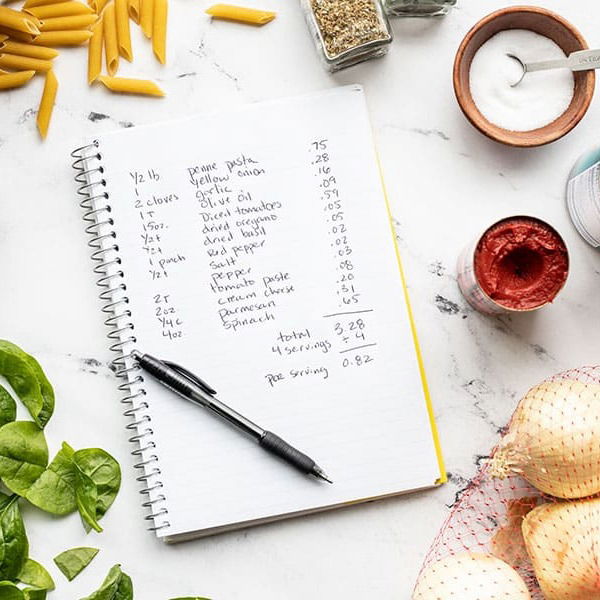 1/2 lb penne pasta .75
1 yellow onion .28
2 cloves garlic .16
1 T olive oil .09
15oz. Diced tomatoes .59
1/2 t dried oregano .05
1/2 t dried basil .05
1 pinch Red pepper .02
1/2 t salt .02
pepper .03
2T tomato paste .08
2oz. cream cheese .20
1/4 c parmesan .31
4oz spinach .65
total 3.28
4 servings ÷ 4
per serving 0.82